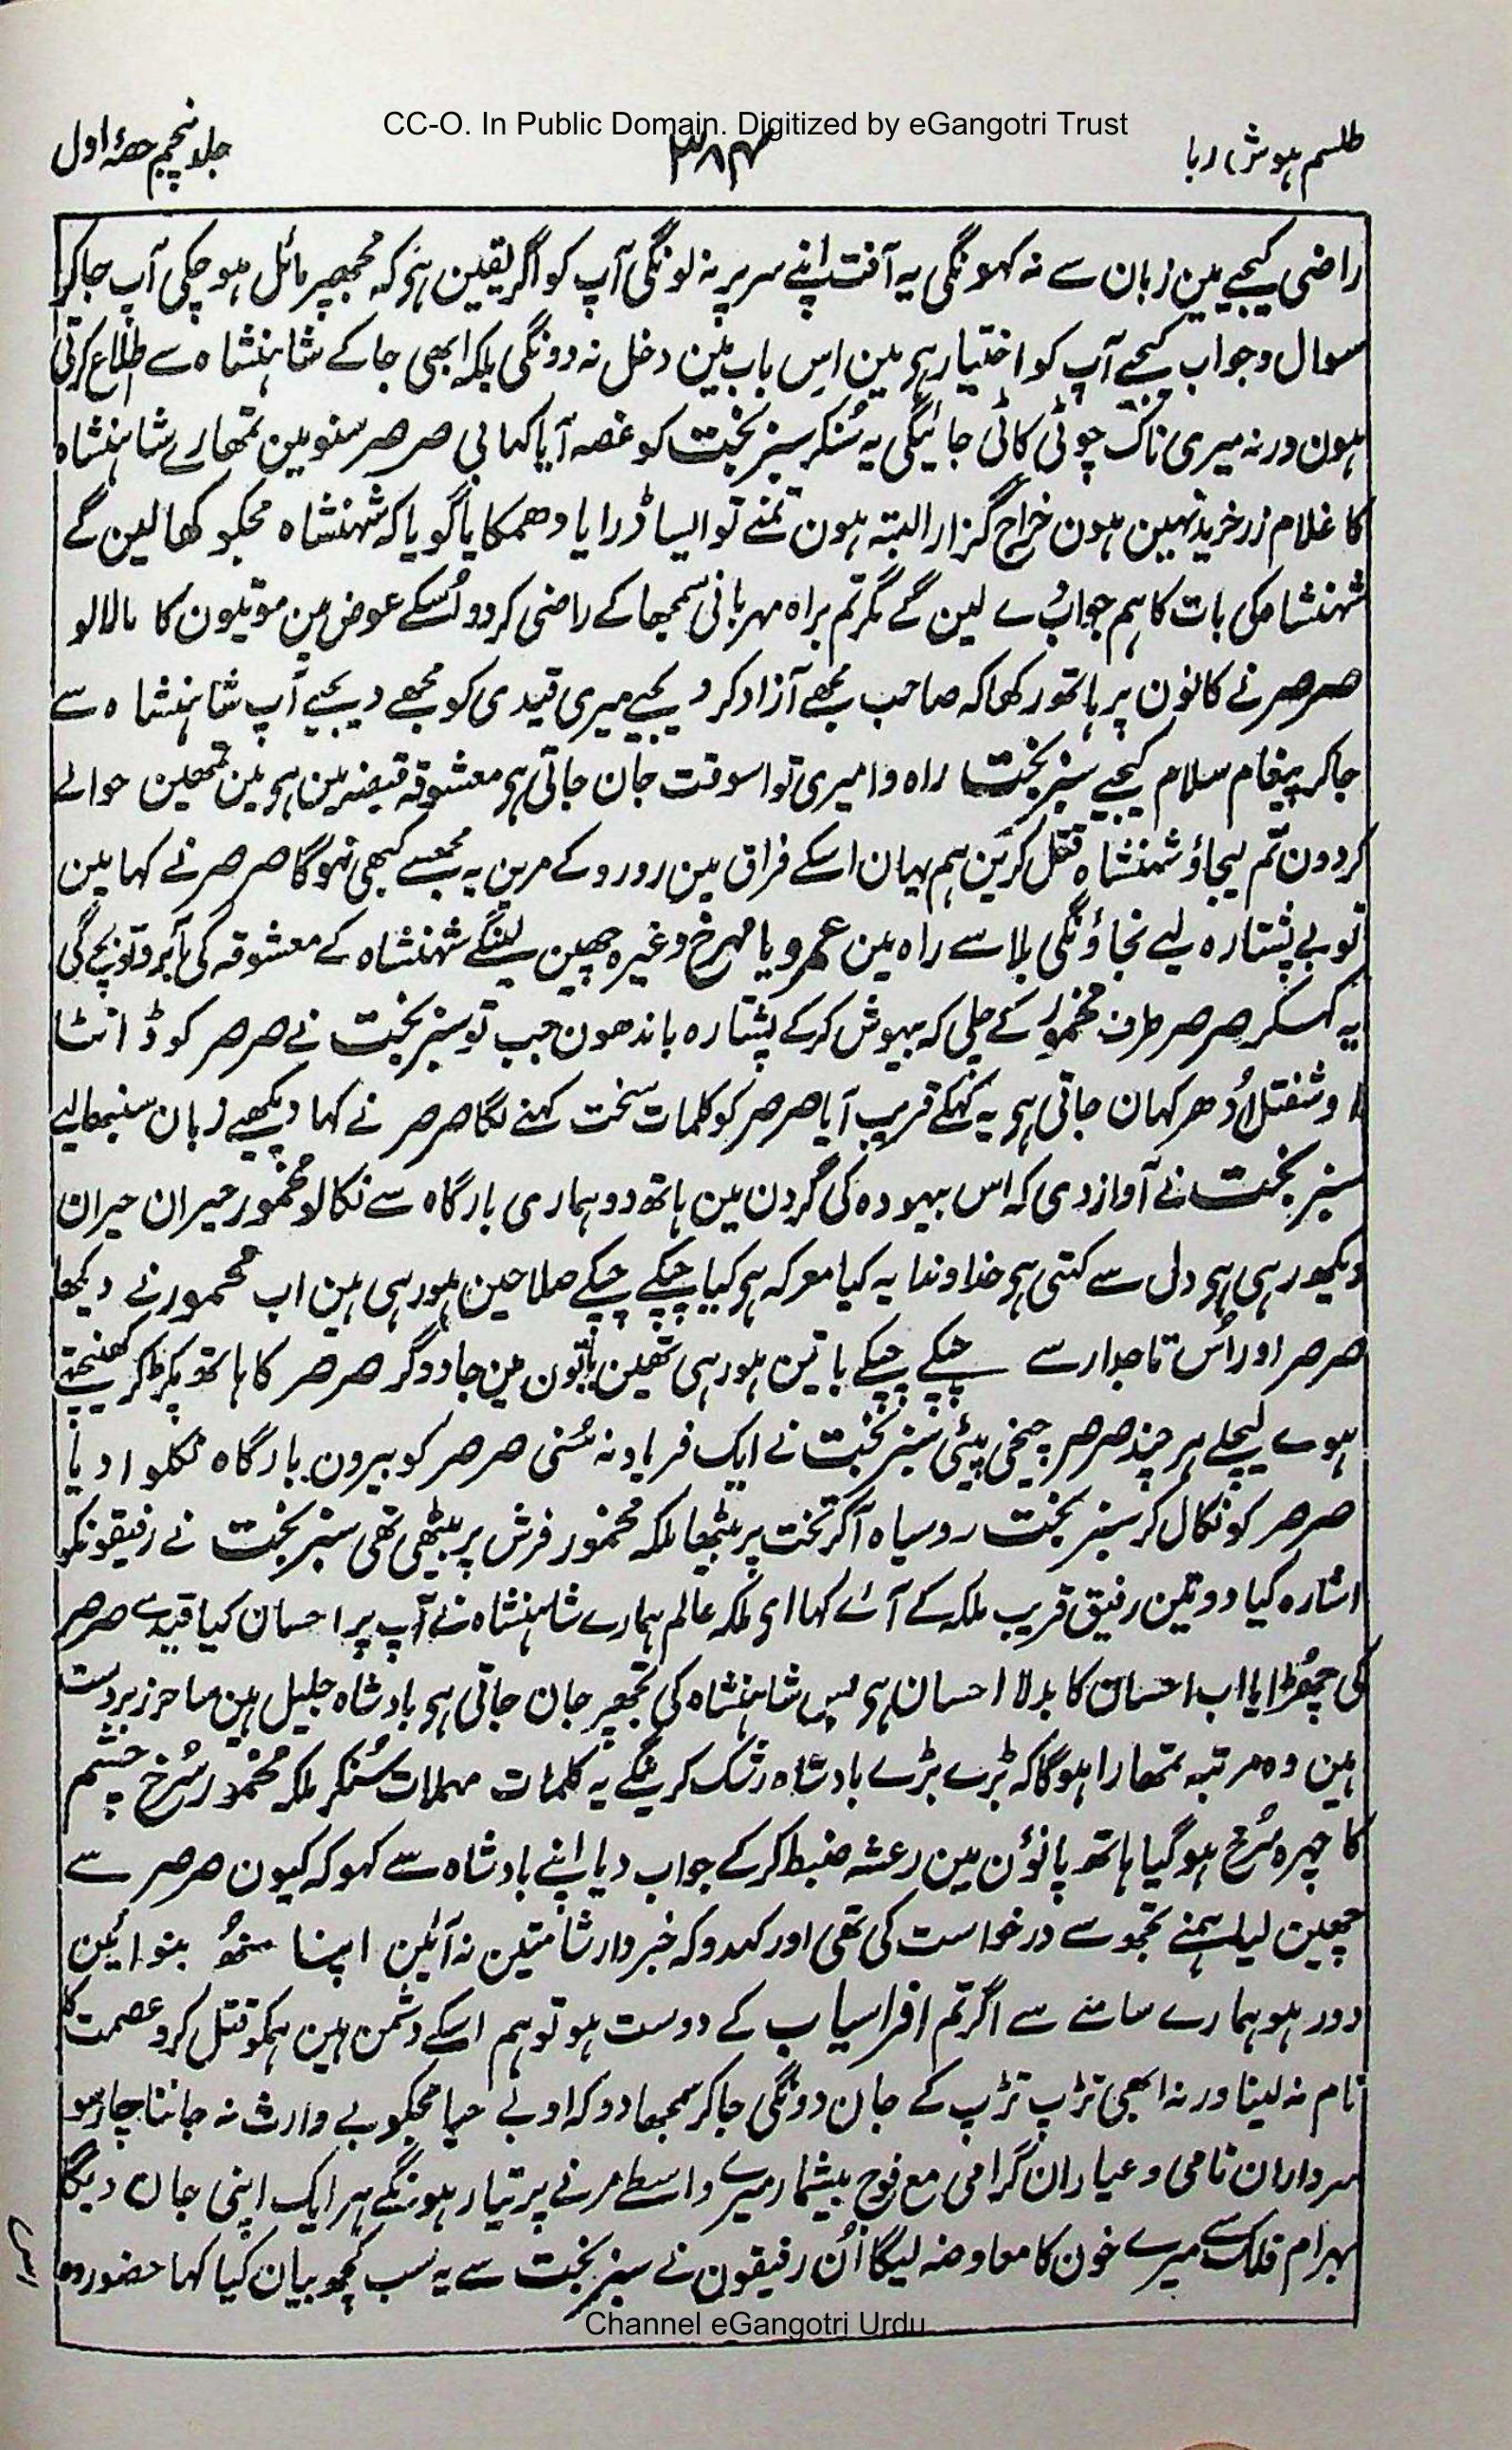 CC-O. In Public Domain. Digitized by eGangotri Trust
طلسم ہوش ربا ۳۸۴ جلد پنجم حصۂ اول
راضی کیجیے مین زبان سے نہ کہونگی یہ آفت اپنے سر پر نہ لونگی آپ کو اگر یقین ہے کہ مجھپر مائل ہو چکی آپ جا کر
سوال و جواب کیجیے آپ کو اختیار ہی مین اس باب مین دخل نہ دونگی بلکہ ابھی جا کے شاہنشاہ سے اطلاع کرتی
ہون ورنہ میری ناک چوٹی کاٹی جائیگی یہ سُنکر سبز بخت کو غصہ آیا کہا بی صرصر سنو مین تمھارے شاہنشاہ
کا غلام زر خرید نہین ہون خراج گزار البتہ ہون تمنے تو ایسا ڈرایا دھمکایا گویا کہ شہنشاہ مجکو کھا لین گے
شہنشاہ کی بات کا ہم جواب دے لین گے مگر تم براہ مہربانی سمجھا کے راضی کر دو اُسکے عوض مین موتیون کا مالا لو
صرصر نے کانون پر ہاتھ رکھا کہ صاحب مجھے آزاد کر دیجیے میری قیدی کو مجھے دیجیے آپ شاہنشاہ سے
جا کر پیغام سلام کیجیے سبز بخت راہ وا میری تو اسوقت جان جاتی ہی معشوقہ قبضہ مین ہی مین تمھین حوالے
کر دون تم لیجاؤ شہنشاہ قتل کرین ہم یہان اسکے فراق مین رو رو کے مرین یہ مجھسے کبھی نہوگا صرصر نے کہا مین
تو بے پشتارہ لیے نجاؤنگی بلا سے راہ مین عمرو یا مہرخ وغیرہ چھین لینگے شہنشاہ کے معشوقہ کی آبرو تو بچے گی
یہ کہسکر صرصر طرف مخمور کے چلی کہ بیہوش کر کے پشتارہ باندھون جب تو سبز بخت نے صرصر کو ڈانٹا
او شفتل اُدھر کہان جاتی ہی یہ کہکے قریب آیا صرصر کو کلمات سخت کہنے لگا صرصر نے کہا دیکھیے زبان سنبھالیے
سبز بخت نے آواز دی کہ اس بیہودہ کی گردن مین ہاتھ دو ہماری بارگاہ سے نکالو مخمور حیران حیران
دیکھ رہی ہی دل سے کہتی ہی خداوندا یہ کیا معرکہ ہی کیا چپکے چپکے صلاحین ہو رہی ہین اب مخمور نے دیکھا
صرصر اور اُس تاجدار سے چپکے چپکے باتین ہو رہی تھین باتون مین جادوگر صرصر کا ہاتھ پکڑ کر کھینچتے
ہوے لیچلے ہر چند صرصر چیخی پیٹی سبز بخت نے ایک فریاد نہ سُنی صرصر کو بیرون بارگاہ نکلوا دیا
صرصر کو نکال کر سبز بخت روسیاہ آکر تخت پر بیٹھا ملکہ مخمور فرش پر بیٹھی تھی سبز بخت نے رفیقونکو
اشارہ کیا دو تین رفیق قریب ملکہ کے آئے کہا ای ملکہ عالم ہمارے شاہنشاہ نے آپ پر احسان کیا قید سے صرصر
کی چھڑایا اب احسان کا بدلا احسان ہی بس شاہنشاہ کی تجھپر جان جاتی ہی بادشاہ جلیل ہین ساحر زبردست
ہین وہ مرتبہ تمھارا ہوگا کہ بڑے بڑے بادشاہ رشک کرینگے یہ کلمات مہملات سُنکر ملکہ مخمور سُرخ چشم
کا چہرہ سُرخ ہو گیا ہاتھ پانوُن مین رعشہ ضبط کر کے جواب دیا اپنے بادشاہ سے کہو کہ کیون صرصر سے
چھین لیا ہمنے تجھ سے درخواست کی تھی اور کہدو کہ خبردار شامتین نہ آئین اپنا منھ بنوائین
دور ہو ہمارے سامنے سے اگر تم افراسیاب کے دوست ہو تو ہم اسکے دشمن ہین ہمکو قتل کرو عصمت کا
نام نہ لینا ورنہ ابھی تڑپ تڑپ کے جان دونگی جا کر سمجھا دو کہ او بے حیا مجکو بے وارث نہ جاننا چار سو
سرداران نامی و عیاران گرامی مع فوج بیشمار میرے واسطے مرنے پر تیار ہونگے ہر ایک اپنی جان دیگا
بہرام فلک سے میرے خون کا معاوضہ لیگا اُن رفیقون نے سبز بخت سے یہ سب کچھ بیان کیا کہا حضور وہ
Channel eGangotri Urdu